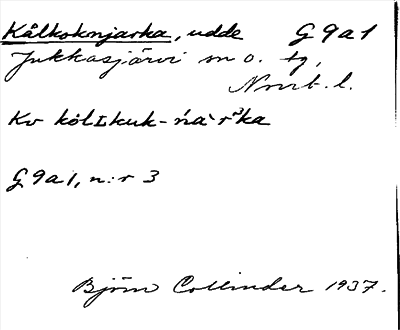 Kålkoknjarka, udde G 9 a 1
Jukkasjärvi sn o. tg,
Nrrb. l.
Kv kölIkuk-ńàr³ka
G 9 a 1, n:r 3
Björn Collinder 1937.